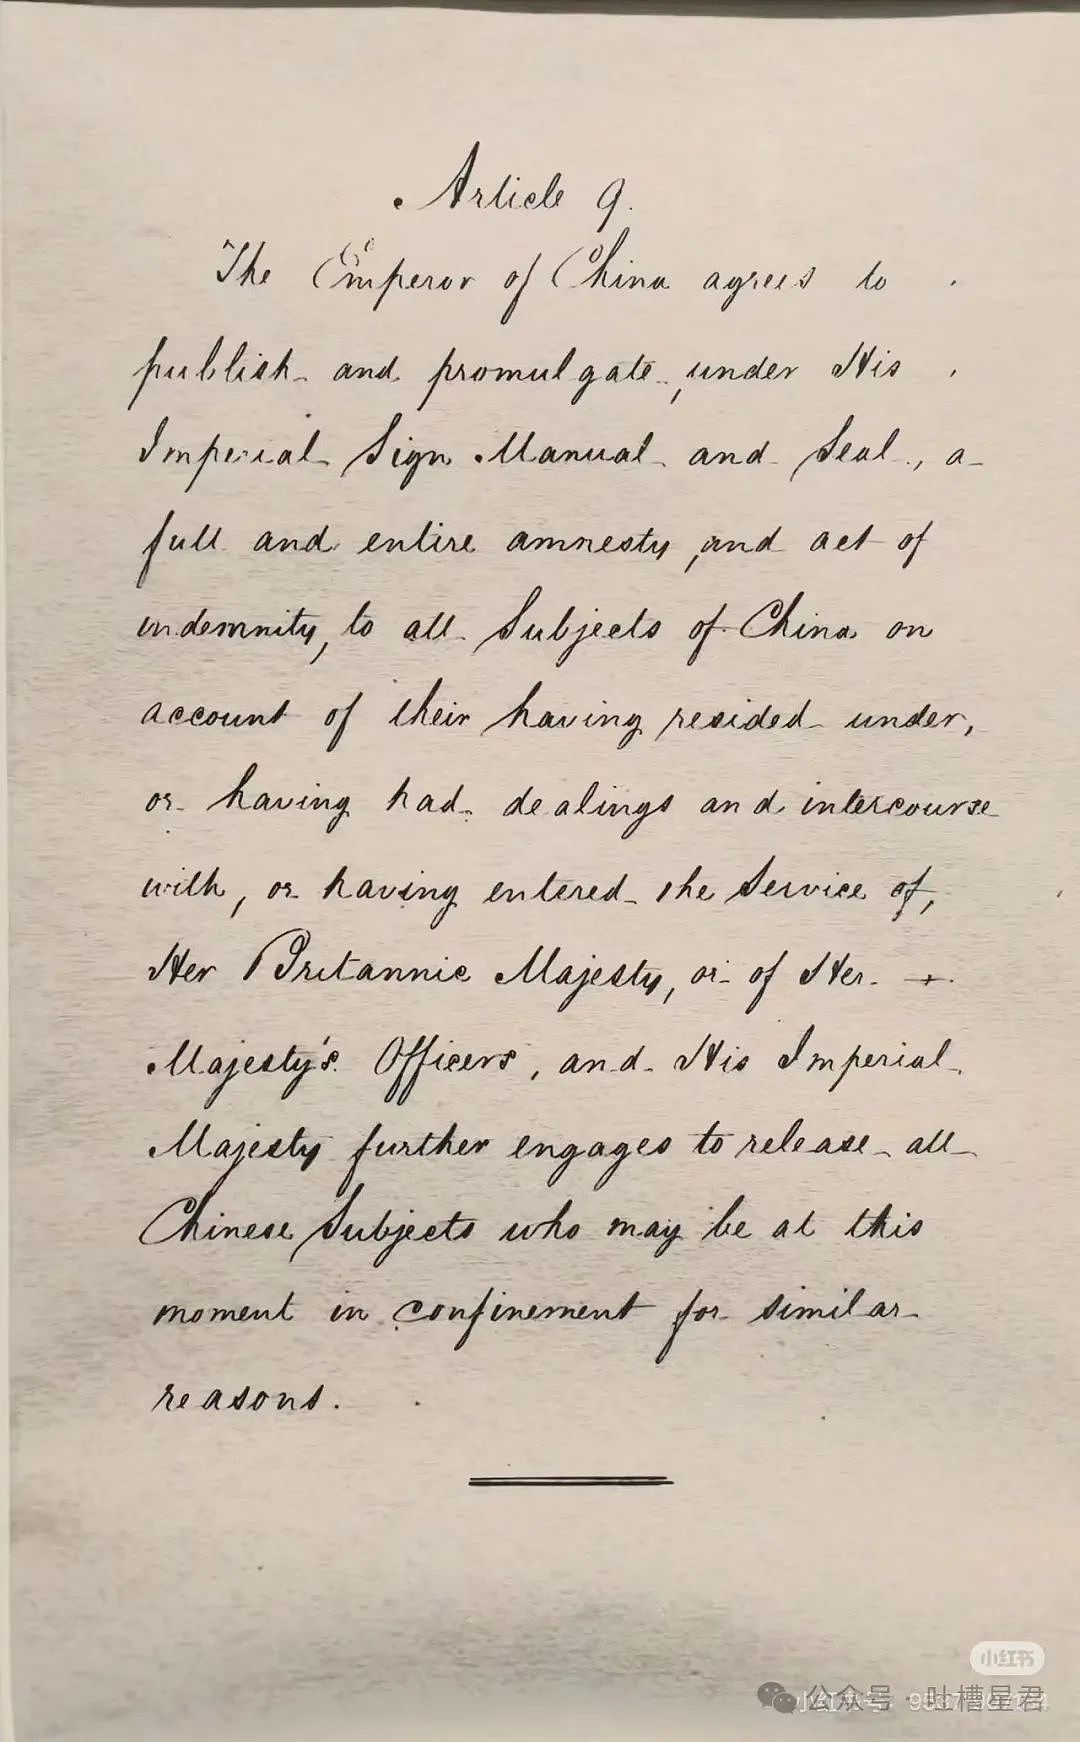 Article 9.
The Emperor of China agrees to
publish and promulgate, under His
Imperial Sign Manual and Seal, a
full and entire amnesty, and act of
indemnity, to all Subjects of China on
account of their having resided under,
or having had dealings and intercourse
with, or having entered the Service of,
Her Britannic Majesty, or of Her
Majesty's Officers, and His Imperial
Majesty further engages to release all
Chinese Subjects who may be at this
moment in confinement for similar
reasons.
小红书
公众号 · 吐槽星君